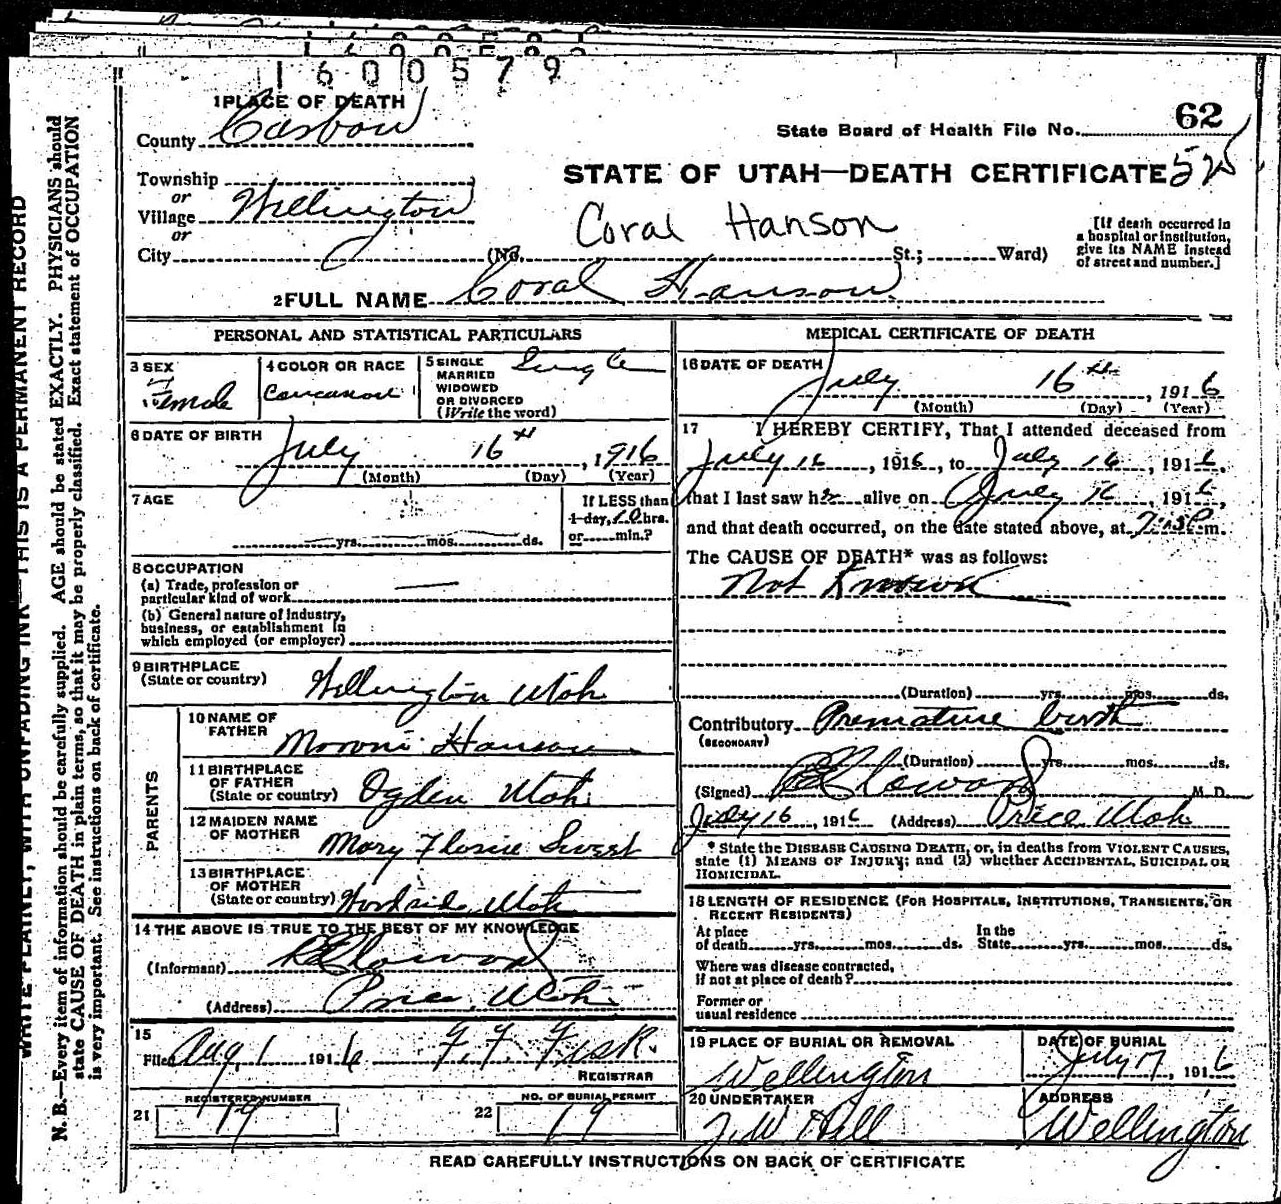 1600579
1 PLACE OF DEATH
County Carbon
State Board of Health File No. 62
Township
or
Village Wellington
or
City (No. St.; Ward)
STATE OF UTAH—DEATH CERTIFICATE 525
Coral Hanson
[If death occurred in
a hospital or institution,
give its NAME instead
of street and number.]
2 FULL NAME Coral Hanson
PERSONAL AND STATISTICAL PARTICULARS
3 SEX
Female
4 COLOR OR RACE
5 SINGLE
MARRIED
WIDOWED
OR DIVORCED
(Write the word)
Single
6 DATE OF BIRTH
July 16th, 1916
(Month) (Day) (Year)
7 AGE
yrs. mos. ds.
If LESS than
1 day, 10 hrs.
or min.?
8 OCCUPATION
(a) Trade, profession or
particular kind of work
(b) General nature of industry,
business, or establishment in
which employed (or employer)
9 BIRTHPLACE
(State or country)
Wellington Utah
PARENTS
10 NAME OF
FATHER
Moroni Hanson
11 BIRTHPLACE
OF FATHER
(State or country)
Ogden Utah
12 MAIDEN NAME
OF MOTHER
Mary Sweet
13 BIRTHPLACE
OF MOTHER
(State or country) Utah
14 THE ABOVE IS TRUE TO THE BEST OF MY KNOWLEDGE
(Informant)
(Address) Price, Utah
15
Filed Aug 1 1916 F. F. Fisk.
REGISTRAR
REGISTERED NUMBER
21 19
NO. OF BURIAL PERMIT
22 19
MEDICAL CERTIFICATE OF DEATH
16 DATE OF DEATH
July 16th, 1916
(Month) (Day) (Year)
17 I HEREBY CERTIFY, That I attended deceased from
July 16, 1916, to July 16, 1916,
that I last saw her alive on July 16, 1916,
and that death occurred, on the date stated above, at m.
The CAUSE OF DEATH* was as follows:
Not Known
(Duration) yrs. mos. ds.
Contributory Premature birth
(SECONDARY)
(Duration) yrs. mos. ds.
(Signed) M. D.
July 16, 1916 (Address) Price Utah
* State the DISEASE CAUSING DEATH, or, in deaths from VIOLENT CAUSES,
state (1) MEANS OF INJURY; and (2) whether ACCIDENTAL, SUICIDAL OR
HOMICIDAL.
18 LENGTH OF RESIDENCE (FOR HOSPITALS, INSTITUTIONS, TRANSIENTS, OR
RECENT RESIDENTS)
At place
of death yrs. mos. ds.
In the
State yrs. mos. ds.
Where was disease contracted,
if not at place of death?
Former or
usual residence
19 PLACE OF BURIAL OR REMOVAL
Wellington
DATE OF BURIAL
July 17, 1916
20 UNDERTAKER
J. W Hill
ADDRESS
Wellington
READ CAREFULLY INSTRUCTIONS ON BACK OF CERTIFICATE
WRITE PLAINLY, WITH UNFADING INK—THIS IS A PERMANENT RECORD
N. B.—Every item of information should be carefully supplied. AGE should be stated EXACTLY. PHYSICIANS should
state CAUSE OF DEATH in plain terms, so that it may be properly classified. Exact statement of OCCUPATION
is very important. See instructions on back of certificate.